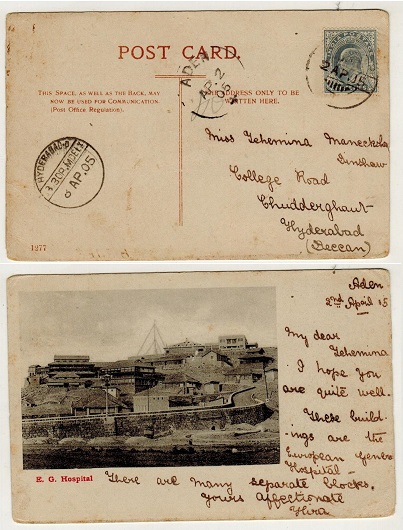 POST CARD.
THIS SPACE, AS WELL AS THE BACK, MAY
NOW BE USED FOR COMMUNICATION.
(Post Office Regulation).
THE ADDRESS ONLY TO BE
WRITTEN HERE.
ADEN
AP 2
05
2 AP. 05
HYDERABAD-D
3.30 P.M.
8 AP. 05
Miss Tehemina Maneckshaw
Dinshaw
College Road
Chudderghaut
Hyderabad
(Deccan)
1277
Aden
2nd April 05
My dear
Tehemina
I hope you
are quite well.
These build-
ings are the
European General
Hospital –
There are many separate blocks.
yours affectionate
E. G. Hospital